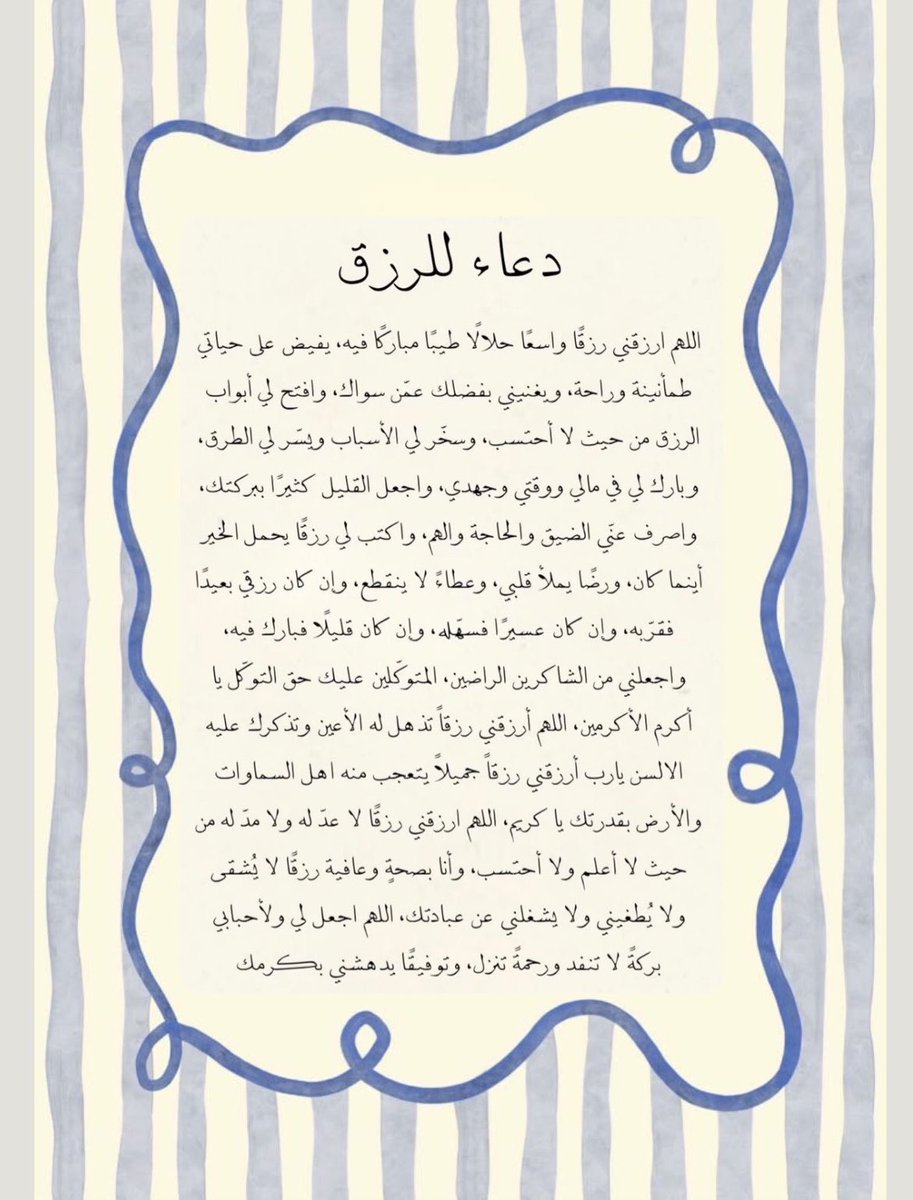 دعاء للرزق
اللهم ارزقني رزقًا واسعًا حلالًا طيبًا مباركًا فيه، يفيض على حياتي
طمأنينة وراحة، ويغنيني بفضلك عمّن سواك، وافتح لي أبواب
الرزق من حيث لا أحتسب، وسخّر لي الأسباب ويسّر لي الطرق،
وبارك لي في مالي ووقتي وجهدي، واجعل القليل كثيرًا ببركتك،
واصرف عنّي الضيق والحاجة والهم، واكتب لي رزقًا يحمل الخير
أينما كان، ورضًا يملأ قلبي، وعطاءً لا ينقطع، وإن كان رزقي بعيدًا
فقرّبه، وإن كان عسيرًا فسهّله، وإن كان قليلًا فبارك فيه،
واجعلني من الشاكرين الراضين، المتوكّلين عليك حق التوكّل يا
أكرم الأكرمين، اللهم أرزقني رزقاً تذهل له الأعين وتذكرك عليه
الالسن يارب أرزقني رزقاً جميلاً يتعجب منه اهل السماوات
والأرض بقدرتك يا كريم، اللهم ارزقني رزقًا لا عدّ له ولا مدّ له من
حيث لا أعلم ولا أحتسب، وأنا بصحةٍ وعافية رزقًا لا يُشقى
ولا يُطغيني ولا يشغلني عن عبادتك، اللهم اجعل لي ولأحبابي
بركةً لا تنفد ورحمةً تنزل، وتوفيقًا يدهشني بكرمك